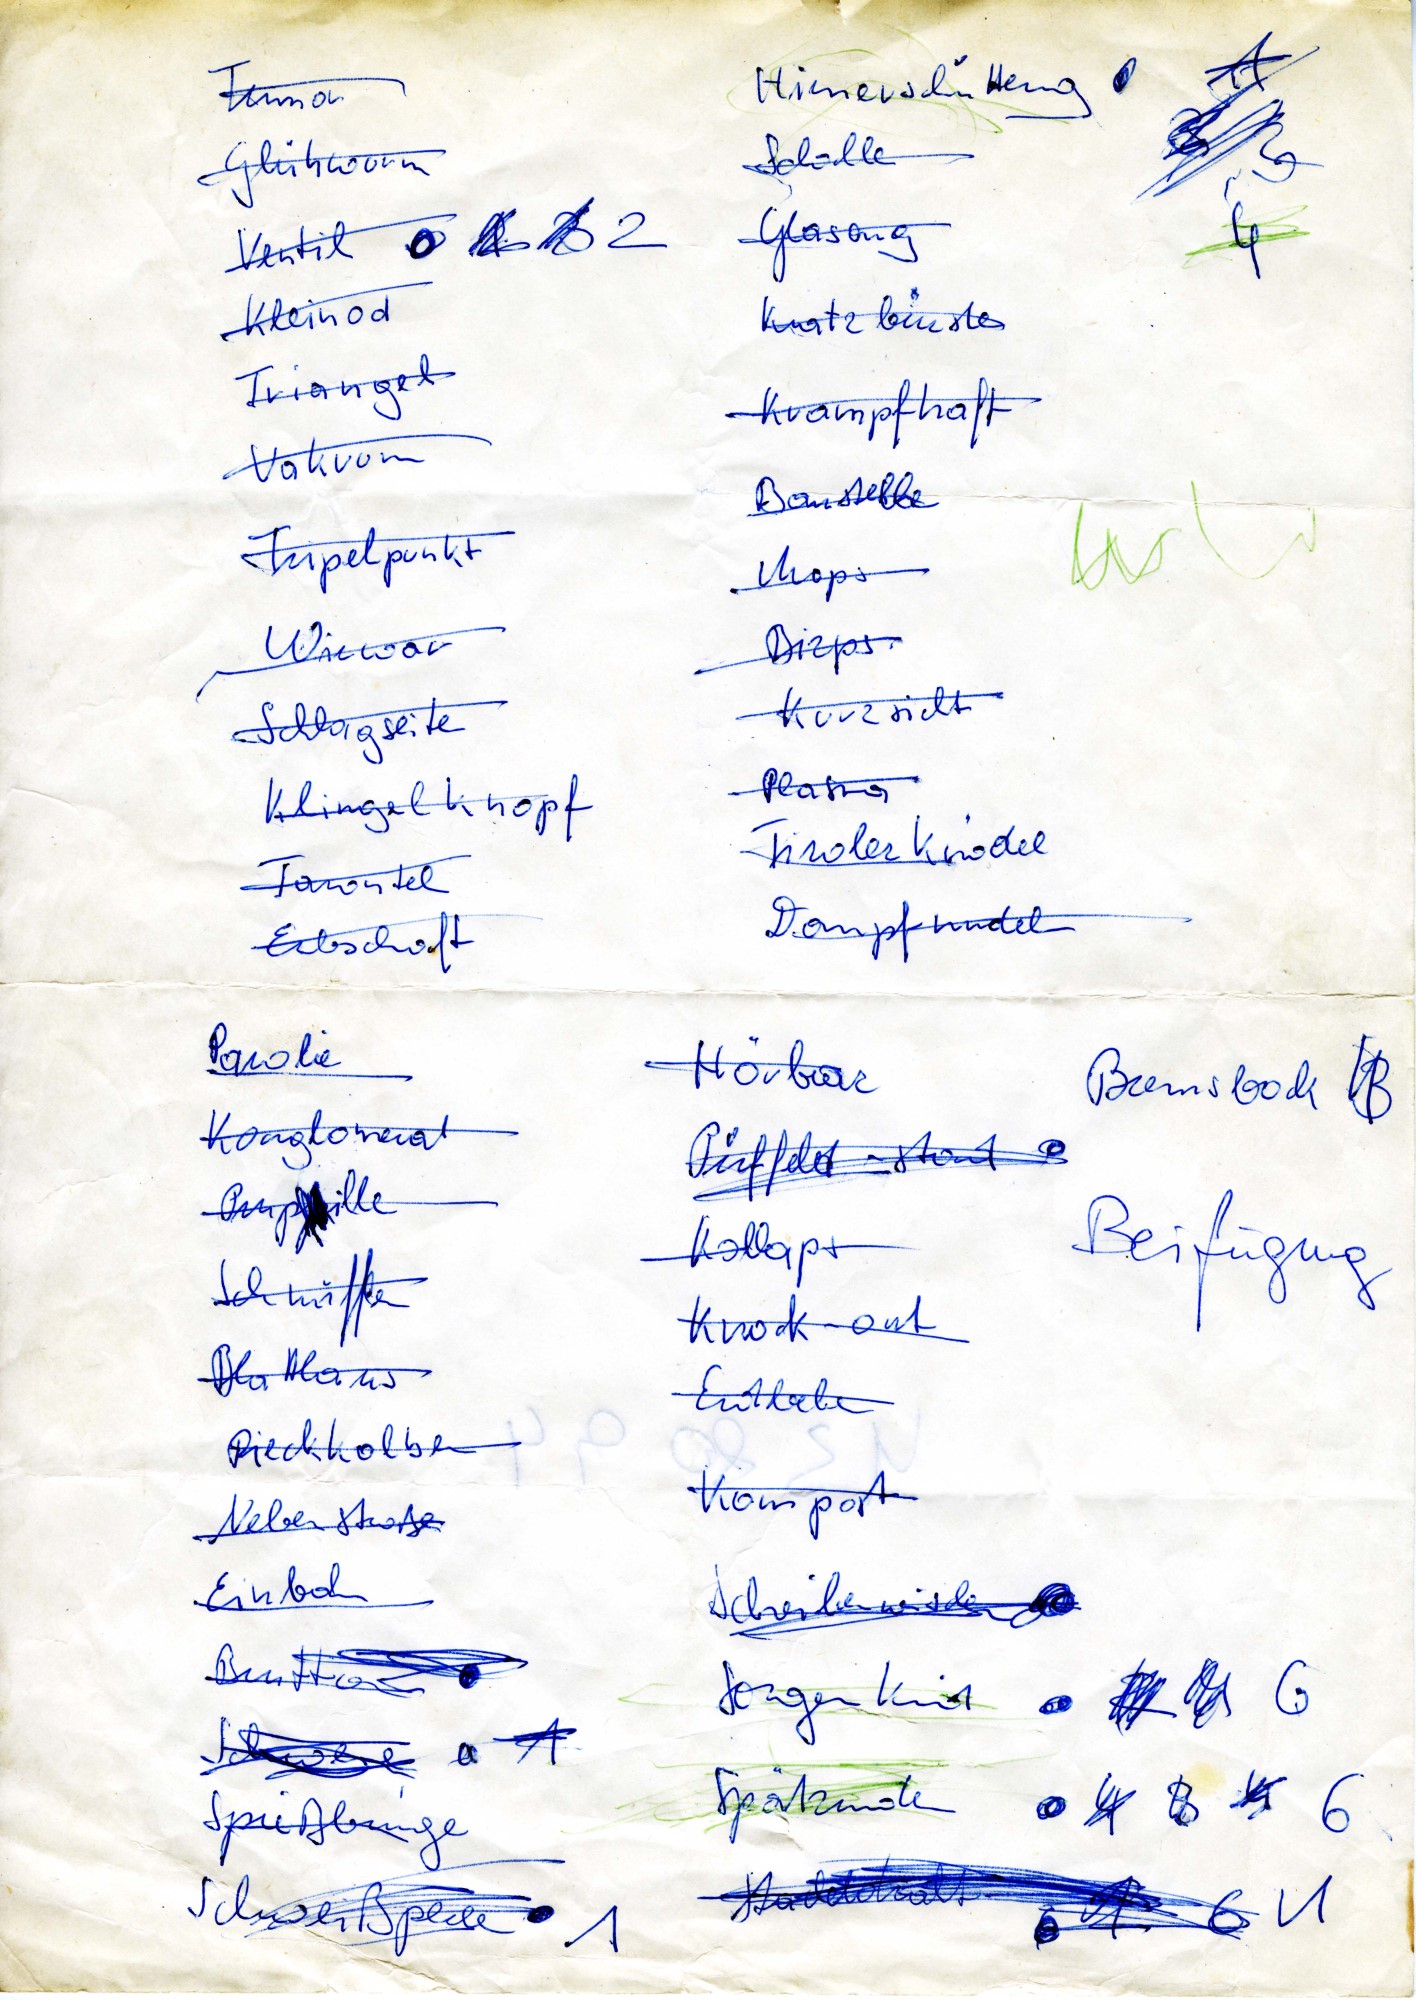 Glühwurm
Ventil 2
Kleinod
Triangel
Vakuum
Tripelpunkt
Wirrwar
Schlagseite
Klingelknopf
Tarantel
Erbschaft
Hirnerschütterung
Glasaug
4
Kratzbürste
Krampfhaft
Baustelle
Mops
Bizeps
Kurzsicht
Plasma
Tirolerknödel
Dampfnudel
Konglomerat
Schnüffler
Blattlaus
Rieckkolben
Nebenstraße
Einbahn
Spießbürge
Schweißperle 1
Hörbar
Kollaps
Knock-out
Kompost
Sorgenkind 6
Spätzunder 6
Bumsbock
Beifügung